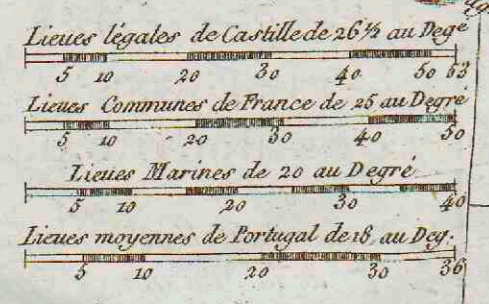 Lieues légales de Castille de 26½ au Degé
5 10 20 30 40 50 53
Lieues Communes de France de 25 au Degré
5 10 20 30 40 50
Lieues Marines de 20 au Degré
5 10 20 30 40
Lieues moyennes de Portugal de 18, au Deg.
5 10 20 30 36